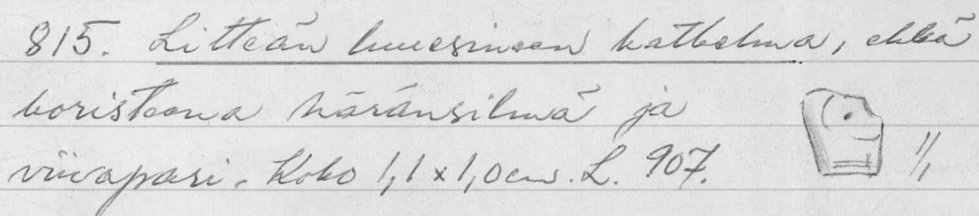 815. Litteän luuesineen katkelma, ehkä
koristeena häränsilmä ja
viivapari. Koko 1,1 x 1,0 cm. L. 907.
1/1